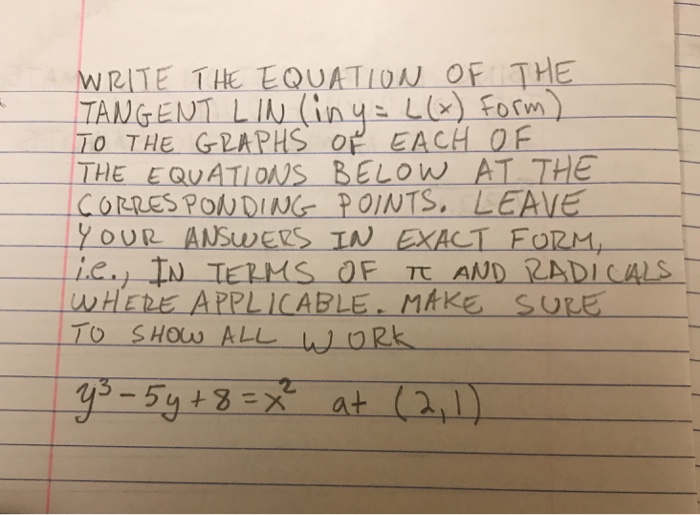 WRITE THE EQUATION OF THE
TANGENT LIN (in y = L(x) Form)
TO THE GRAPHS OF EACH OF
THE EQUATIONS BELOW AT THE
CORRESPONDING POINTS. LEAVE
YOUR ANSWERS IN EXACT FORM,
i.e., IN TERMS OF π AND RADICALS
WHERE APPLICABLE. MAKE SURE
TO SHOW ALL WORK
y³ - 5y + 8 = x² at (2,1)